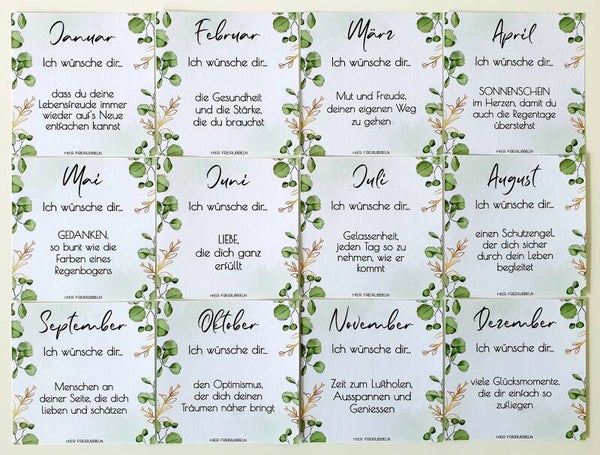 Januar
Ich wünsche dir...
dass du deine
Lebensfreude immer
wieder auf's Neue
entfachen kannst
Februar
Ich wünsche dir...
die Gesundheit
und die Stärke,
die du brauchst
März
Ich wünsche dir...
Mut und Freude,
deinen eigenen Weg
zu gehen
HIER FREIRUBBELN
April
Ich wünsche dir...
SONNENSCHEIN
im Herzen, damit du
auch die Regentage
überstehst
HIER FREIRUBBELN
Mai
Ich wünsche dir...
GEDANKEN,
so bunt wie die
Farben eines
Regenbogens
HIER FREIRUBBELN
Juni
Ich wünsche dir...
LIEBE,
die dich ganz
erfüllt
HIER FREIRUBBELN
Juli
Ich wünsche dir...
Gelassenheit,
jeden Tag so zu
nehmen, wie er
kommt
HIER FREIRUBBELN
August
Ich wünsche dir...
einen Schutzengel,
der dich sicher
durch dein Leben
begleitet
HIER FREIRUBBELN
September
Ich wünsche dir...
Menschen an
deiner Seite, die dich
lieben und schätzen
HIER FREIRUBBELN
Oktober
Ich wünsche dir...
den Optimismus,
der dich deinen
Träumen näher bringt
HIER FREIRUBBELN
November
Ich wünsche dir...
Zeit zum Luftholen,
Ausspannen und
Geniessen
HIER FREIRUBBELN
Dezember
Ich wünsche dir...
viele Glücksmomente,
die dir einfach so
zufliegen
HIER FREIRUBBELN